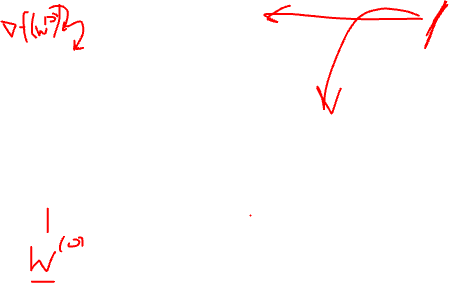 ∇f(w⁽⁰⁾)
w⁽⁰⁾